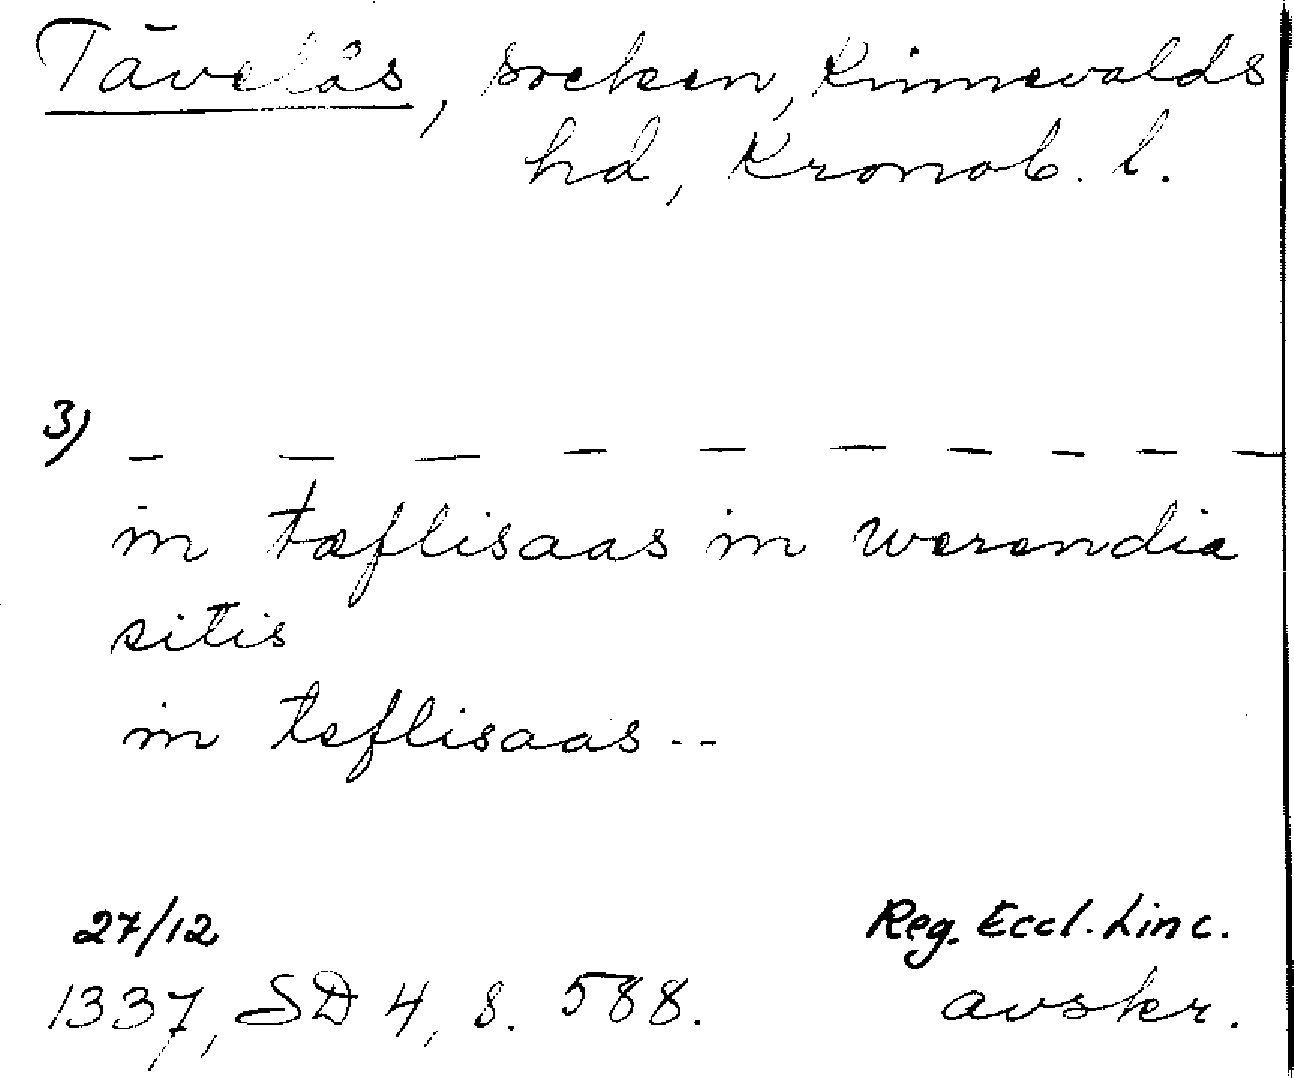 Tävelås, socken, Kinnevalds
hd, Kronob. l.
3) – – – – – – – – – –
in tæflisaas in werendia
sitis
in teflisaas --
27/12 Reg. Eccl. Linc.
1337, SD 4, s. 588. avskr.